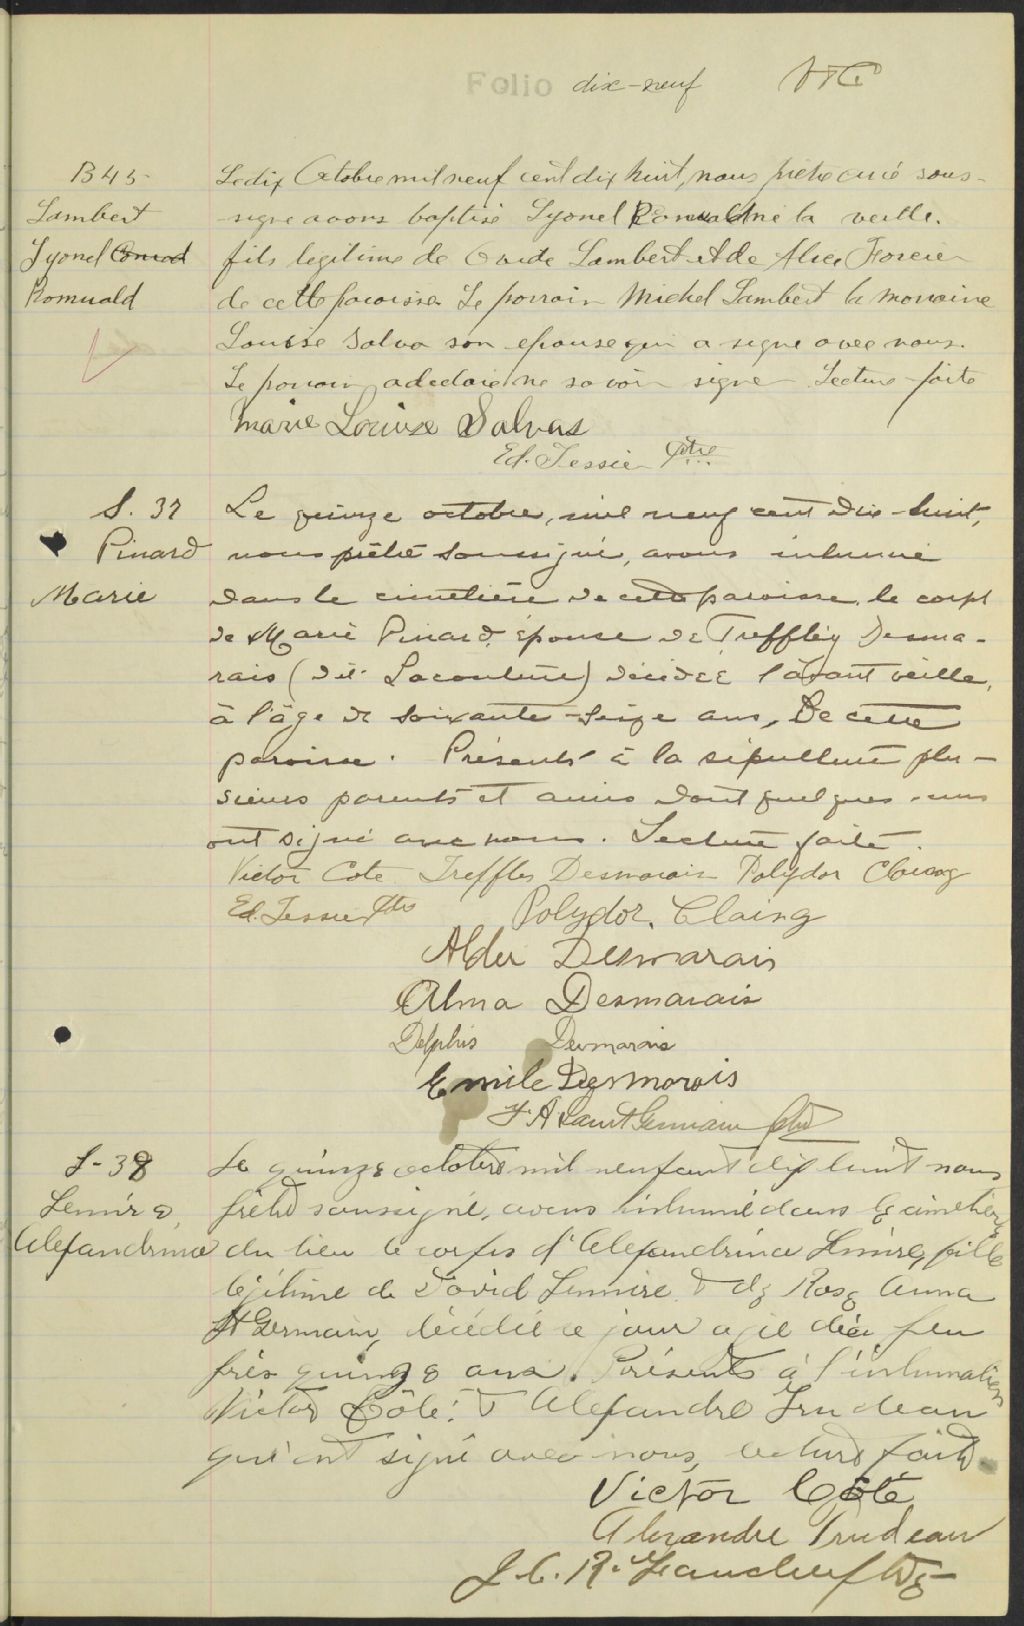 Folio dix-neuf
B 45
Lambert
Lyonel Conrad
Romuald
Le dix Octobre mil neuf cent dix huit, nous prêtre curé sous-
signe avons baptisé Lyonel Romuald né la veille.
fils legitime de Ovide Lambert et de Alice Forcier
de cette paroisse Le parrain Michel Lambert la marraine
Louise Salva son epouse qui a signe avec nous.
Le parrain a declaré ne savoir signer Lecture faite
Marie Louise Salvas
Ed. Tessier Ptre
S. 37
Pinard
Marie
Le quinze octobre, mil neuf cent dix-huit,
nous prêtre soussigné, avons inhumé
dans le cimetière de cette paroisse, le corps
de Marie Pinard, épouse de Treffley Desma-
rais (dit Lacouture) décédée l'avant veille,
à l'âge de soixante-seize ans, De cette
paroisse. Présents à la sépulture plu-
sieurs parents et amis dont quelques-uns
ont signé avec nous. Lecture faite.
Victor Cote Treffles Desmarais Polydor
Ed. Tessier Ptre Polydor. Claing
Desmarais
Alma Desmarais
Delphis Desmarais
Emile Desmarais
F A Saint Germain ptre
S-38
Lemire,
Alexandrina
Le quinze octobre mil neuf cent dix huit nous
prêtre soussigné, avons inhumé dans le cimetière
du lieu le corps d'Alexandrina Lemire, fille
légitime de David Lemire & de Rose Anna
St Germain, décédée ce jour agée d'à peu
près quinze ans. Présents à l'inhumation
Victor Côté & Alexandre Trudeau
qui ont signé avec nous, lecture faite.
Victor Côté
Alexandre Trudeau
J. C. R.